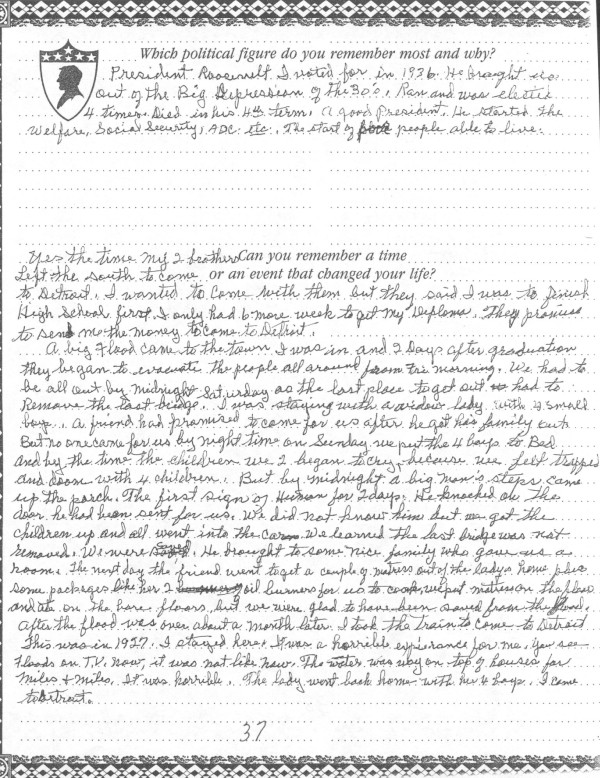 Which political figure do you remember most and why?
President Roosevelt I voted for in 1936. He brought us
out of the Big Depression of the 30's. Ran and was elected
4 times. Died in his 4th term. A good President. He started the
Welfare, Social Security, ADC. etc. The start of people able to live.
Yes the time my 2 brothers Can you remember a time
Left the South to come or an event that changed your life?
to Detroit. I wanted to come with them but they said I was to finish
High School first. I only had 6 more week to get my Diploma. They promise
to send me the money to come to Detroit.
A big Flood came to the town I was in and 2 Days after graduation
they began to evacuate the people all around from the morning. We had to
be all out by midnight Saturday as the last place to get out had to
Remove the last bridge. I was staying with a widow lady, with 4 small
boys. A friend had promised to come for us after he got his family out.
But no one came for us by night time on Sunday we put the 4 boys to Bed
And by the time the children we 2 began to cry, because we felt trapped
and doom with 4 children. But by midnight a big man's steps came
up the porch. The first sign of Human for 2 days. He knocked on the
door he had been sent for us. We did not know him but we got the
children up and all went into the car We learned the last bridge was not
removed. We were He brought to some nice family who gave us a
room. The next day the friend went to get a couple of matress out of the ladys home plus
some packages like her 2 oil burners for us to cook, we put matress on the floor
and ate on the bare floors, but we were glad to have been saved from the flood.
After the flood was over about a month later I took the train to come to Detroit
This was in 1927. I stayed here. It was a horrible experiance for me. You see
Floods on T.V. now, it was not like now. The water was way on top of houses for
Miles & miles. It was horrible. The lady went back home with her 4 boys. I came
to Detroit.
37